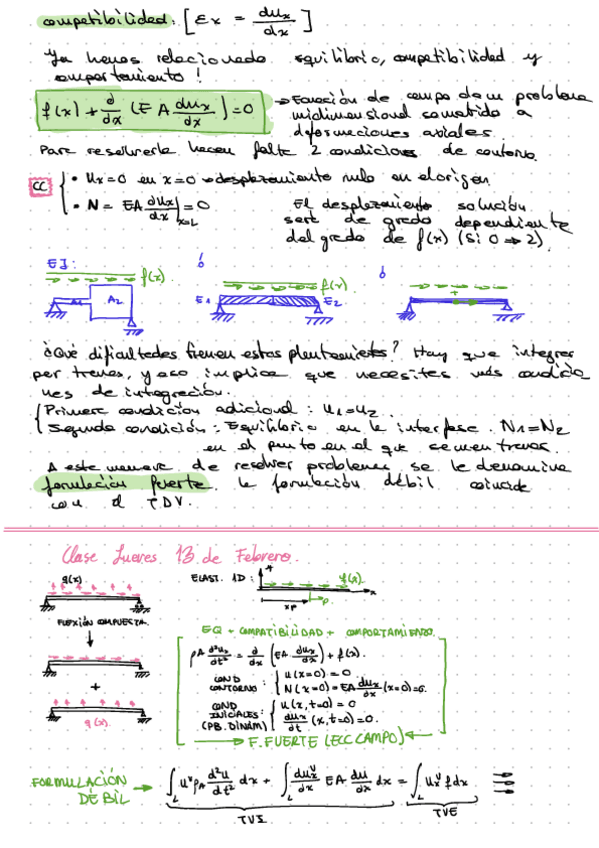 compatibilidad: [εx = dux/dx]
Ya hemos relacionado equilibrio, compatibilidad y
comportamiento!
f(x) + d/dx (E A dux/dx) = 0 → Ecuación de campo de un problema
unidimensional sometido a
deformaciones axiales.
Para resolverla hacen falta 2 condiciones de contorno.
CC { • ux=0 en x=0 → desplazamiento nulo en el origen
• N = EA dux/dx|x=L = 0
El desplazamiento solución
será de grado dependiente
del grado de f(x) (si 0 ⇒ 2).
EJ: f(x) ó f(x) ó
A1 A2 E1 E2 +
¿Qué dificultades tienen estos planteamientos? Hay que integrar
por tramos, y eso implica que necesites más condicio
nes de integración.
{ Primera condición adicional: u1=u2.
Segunda condición: Equilibrio en la interfase. N1=N2
en el punto en el que se unen tramos.
A esta manera de resolver problemas se le denomina
formulación fuerte. la formulación débil coincide
con el TDV.
Clase Jueves 13 de Febrero.
q(x) ELAST. 1D: f(x)
x
xp P
FLEXIÓN COMPUESTA.
+
q(x).
EQ + COMPATIBILIDAD + COMPORTAMIENTO.
ρA d²ux/dt² = d/dx (EA dux/dx) + f(x).
COND CONTORNO: { u(x=0) = 0
N(x=0) = EA dux/dx (x=0)=0.
COND INICIALES: (PB. DINÁM) { u(x,t=0) = 0
dux/dt (x,t=0)=0.
F. FUERTE (ECC CAMPO)
FORMULACIÓN DÉBIL → ∫L uᵛ ρA d²u/dt² dx + ∫L duxᵛ/dx EA du/dx dx = ∫L uxᵛ f dx
TVI TVE